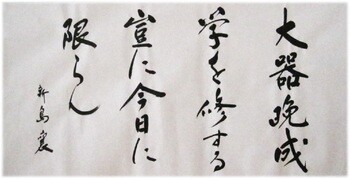 大器晩成
学を修する
豈に今日に
限らん
新島襄